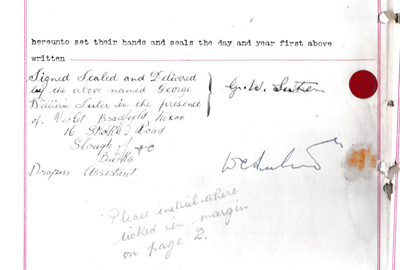 hereunto set their hands and seals the day and year first above
written
Signed Sealed and Delivered
by the above named George
William Suter in the presence
of Violet Bradfield Nixon
16 Stoke Road
Slough
Bucks
Drapers Assistant
G. W.
Please initial where
ticked in margin
on page 2.